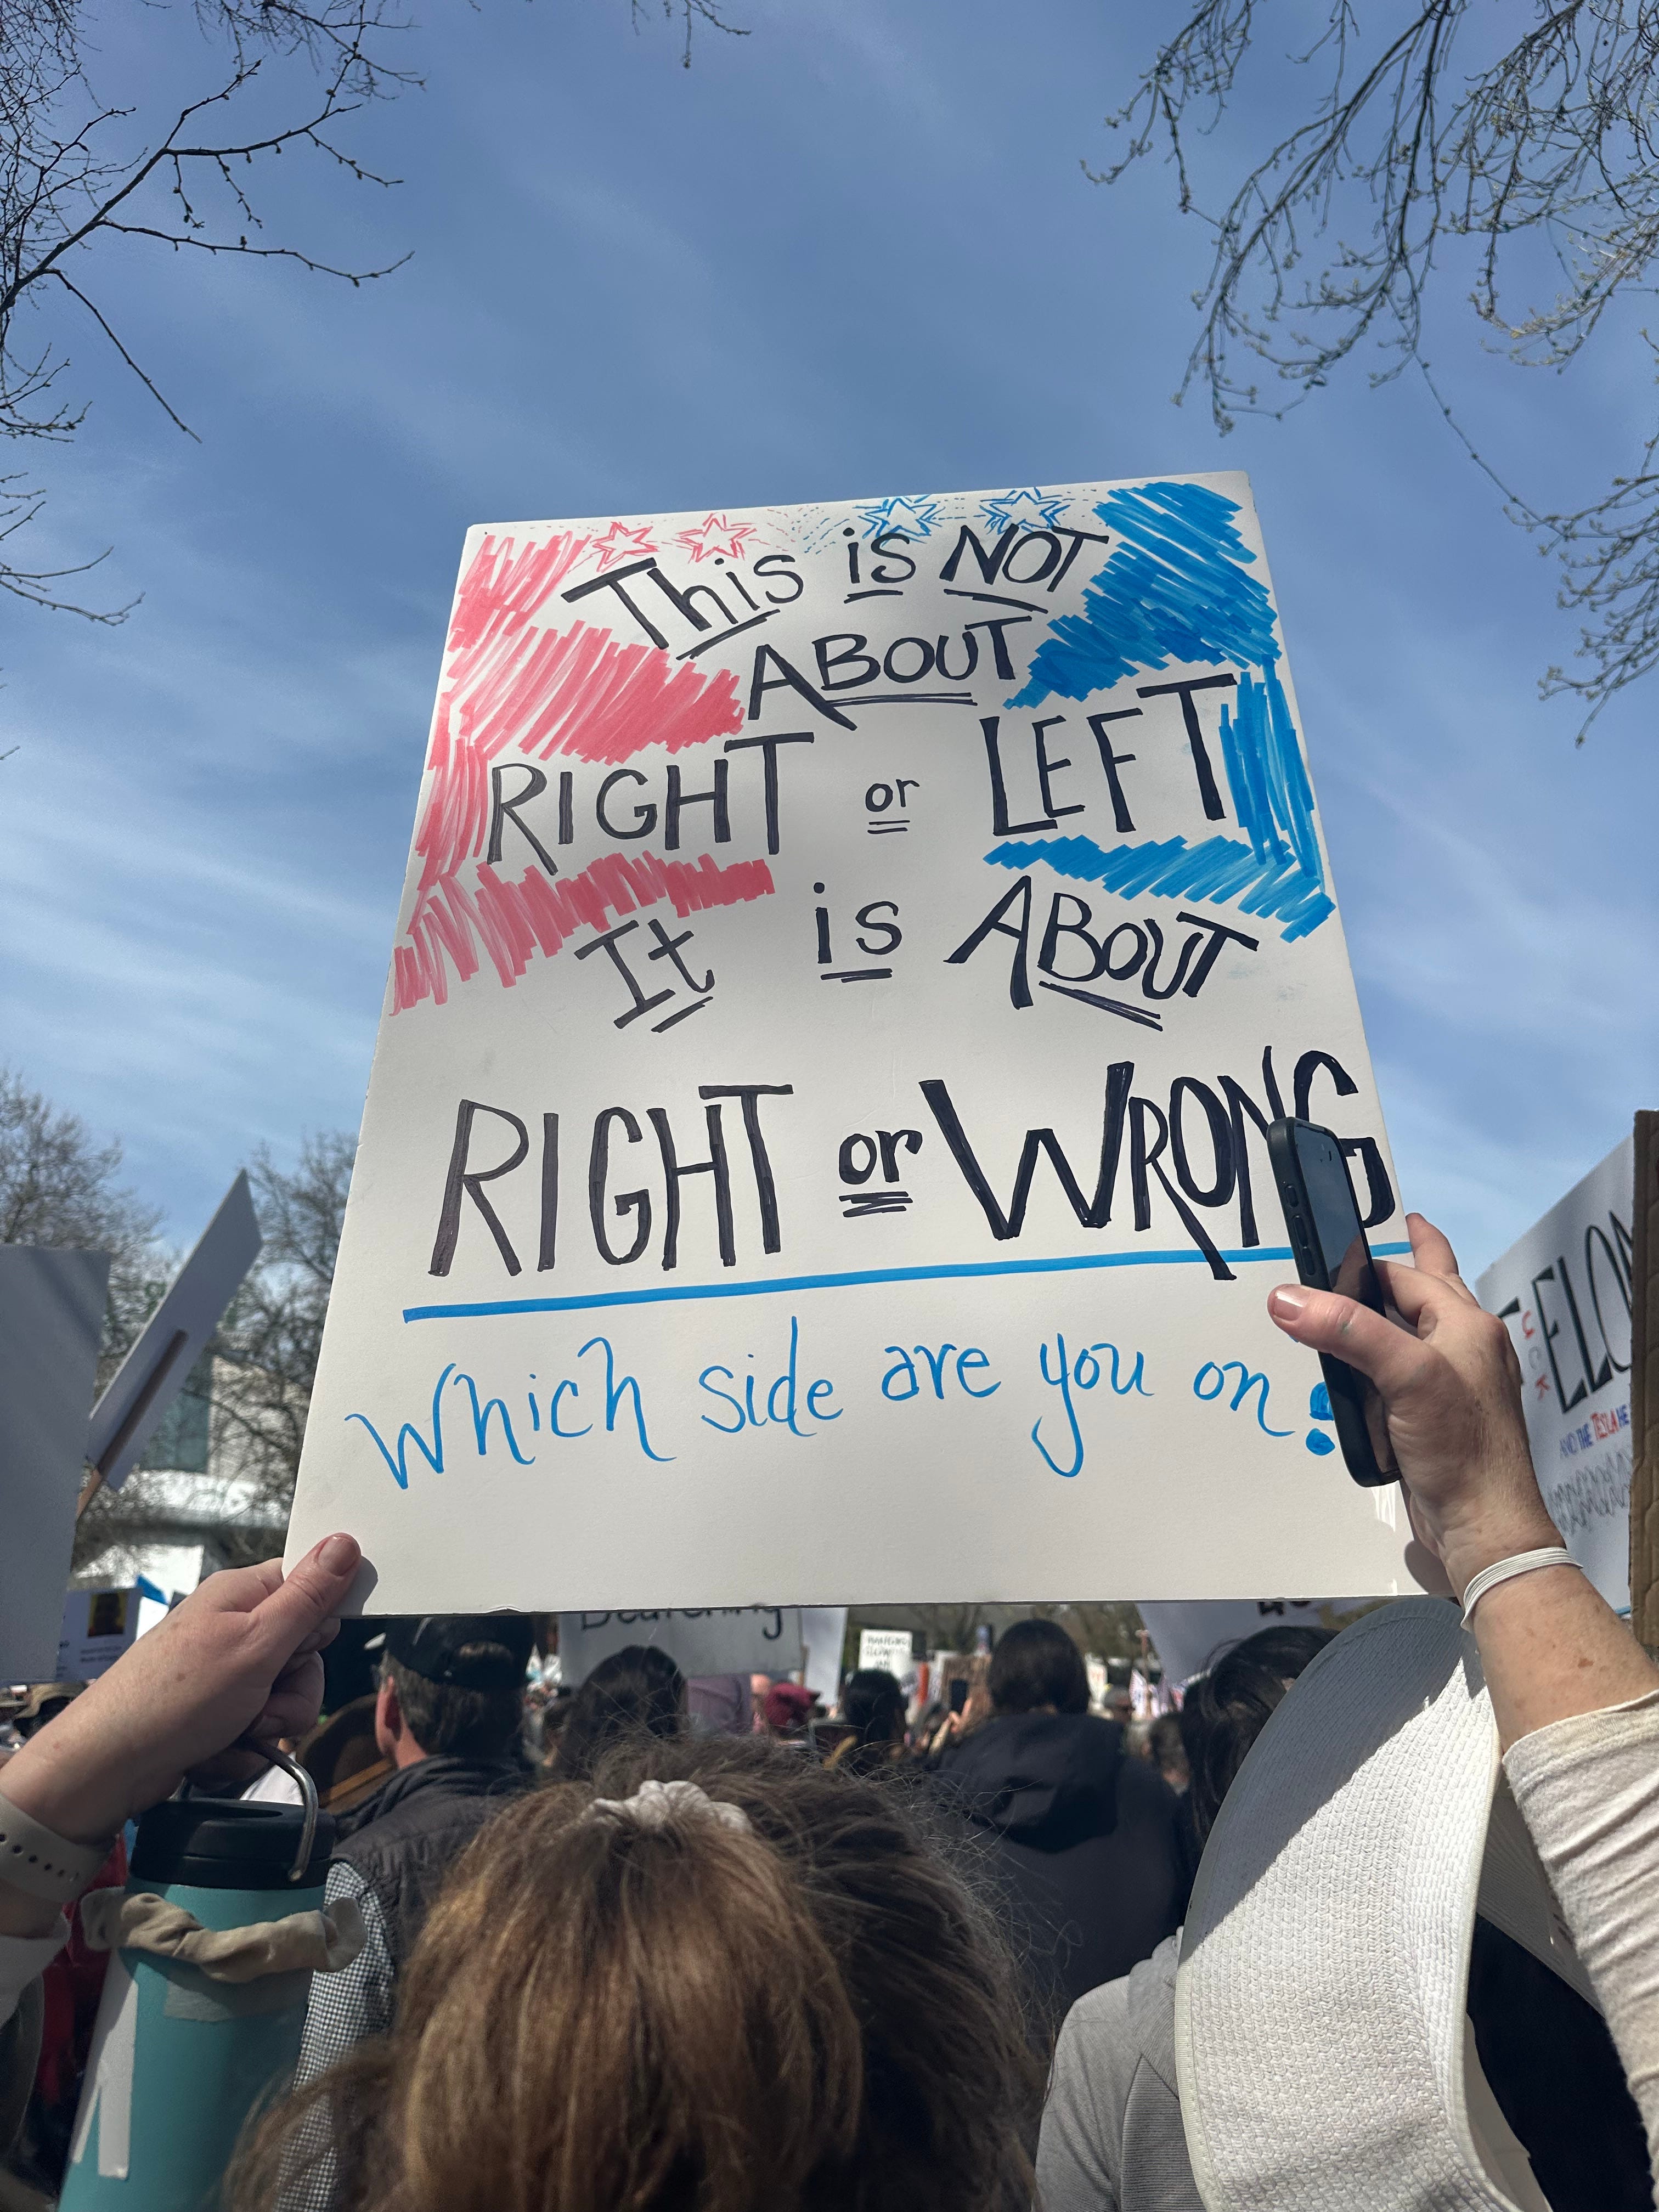 This is NOT
ABOUT
RIGHT or LEFT
It is ABOUT
RIGHT or WRONG
Which side are you on!
ELON
AND THE TESLA HE